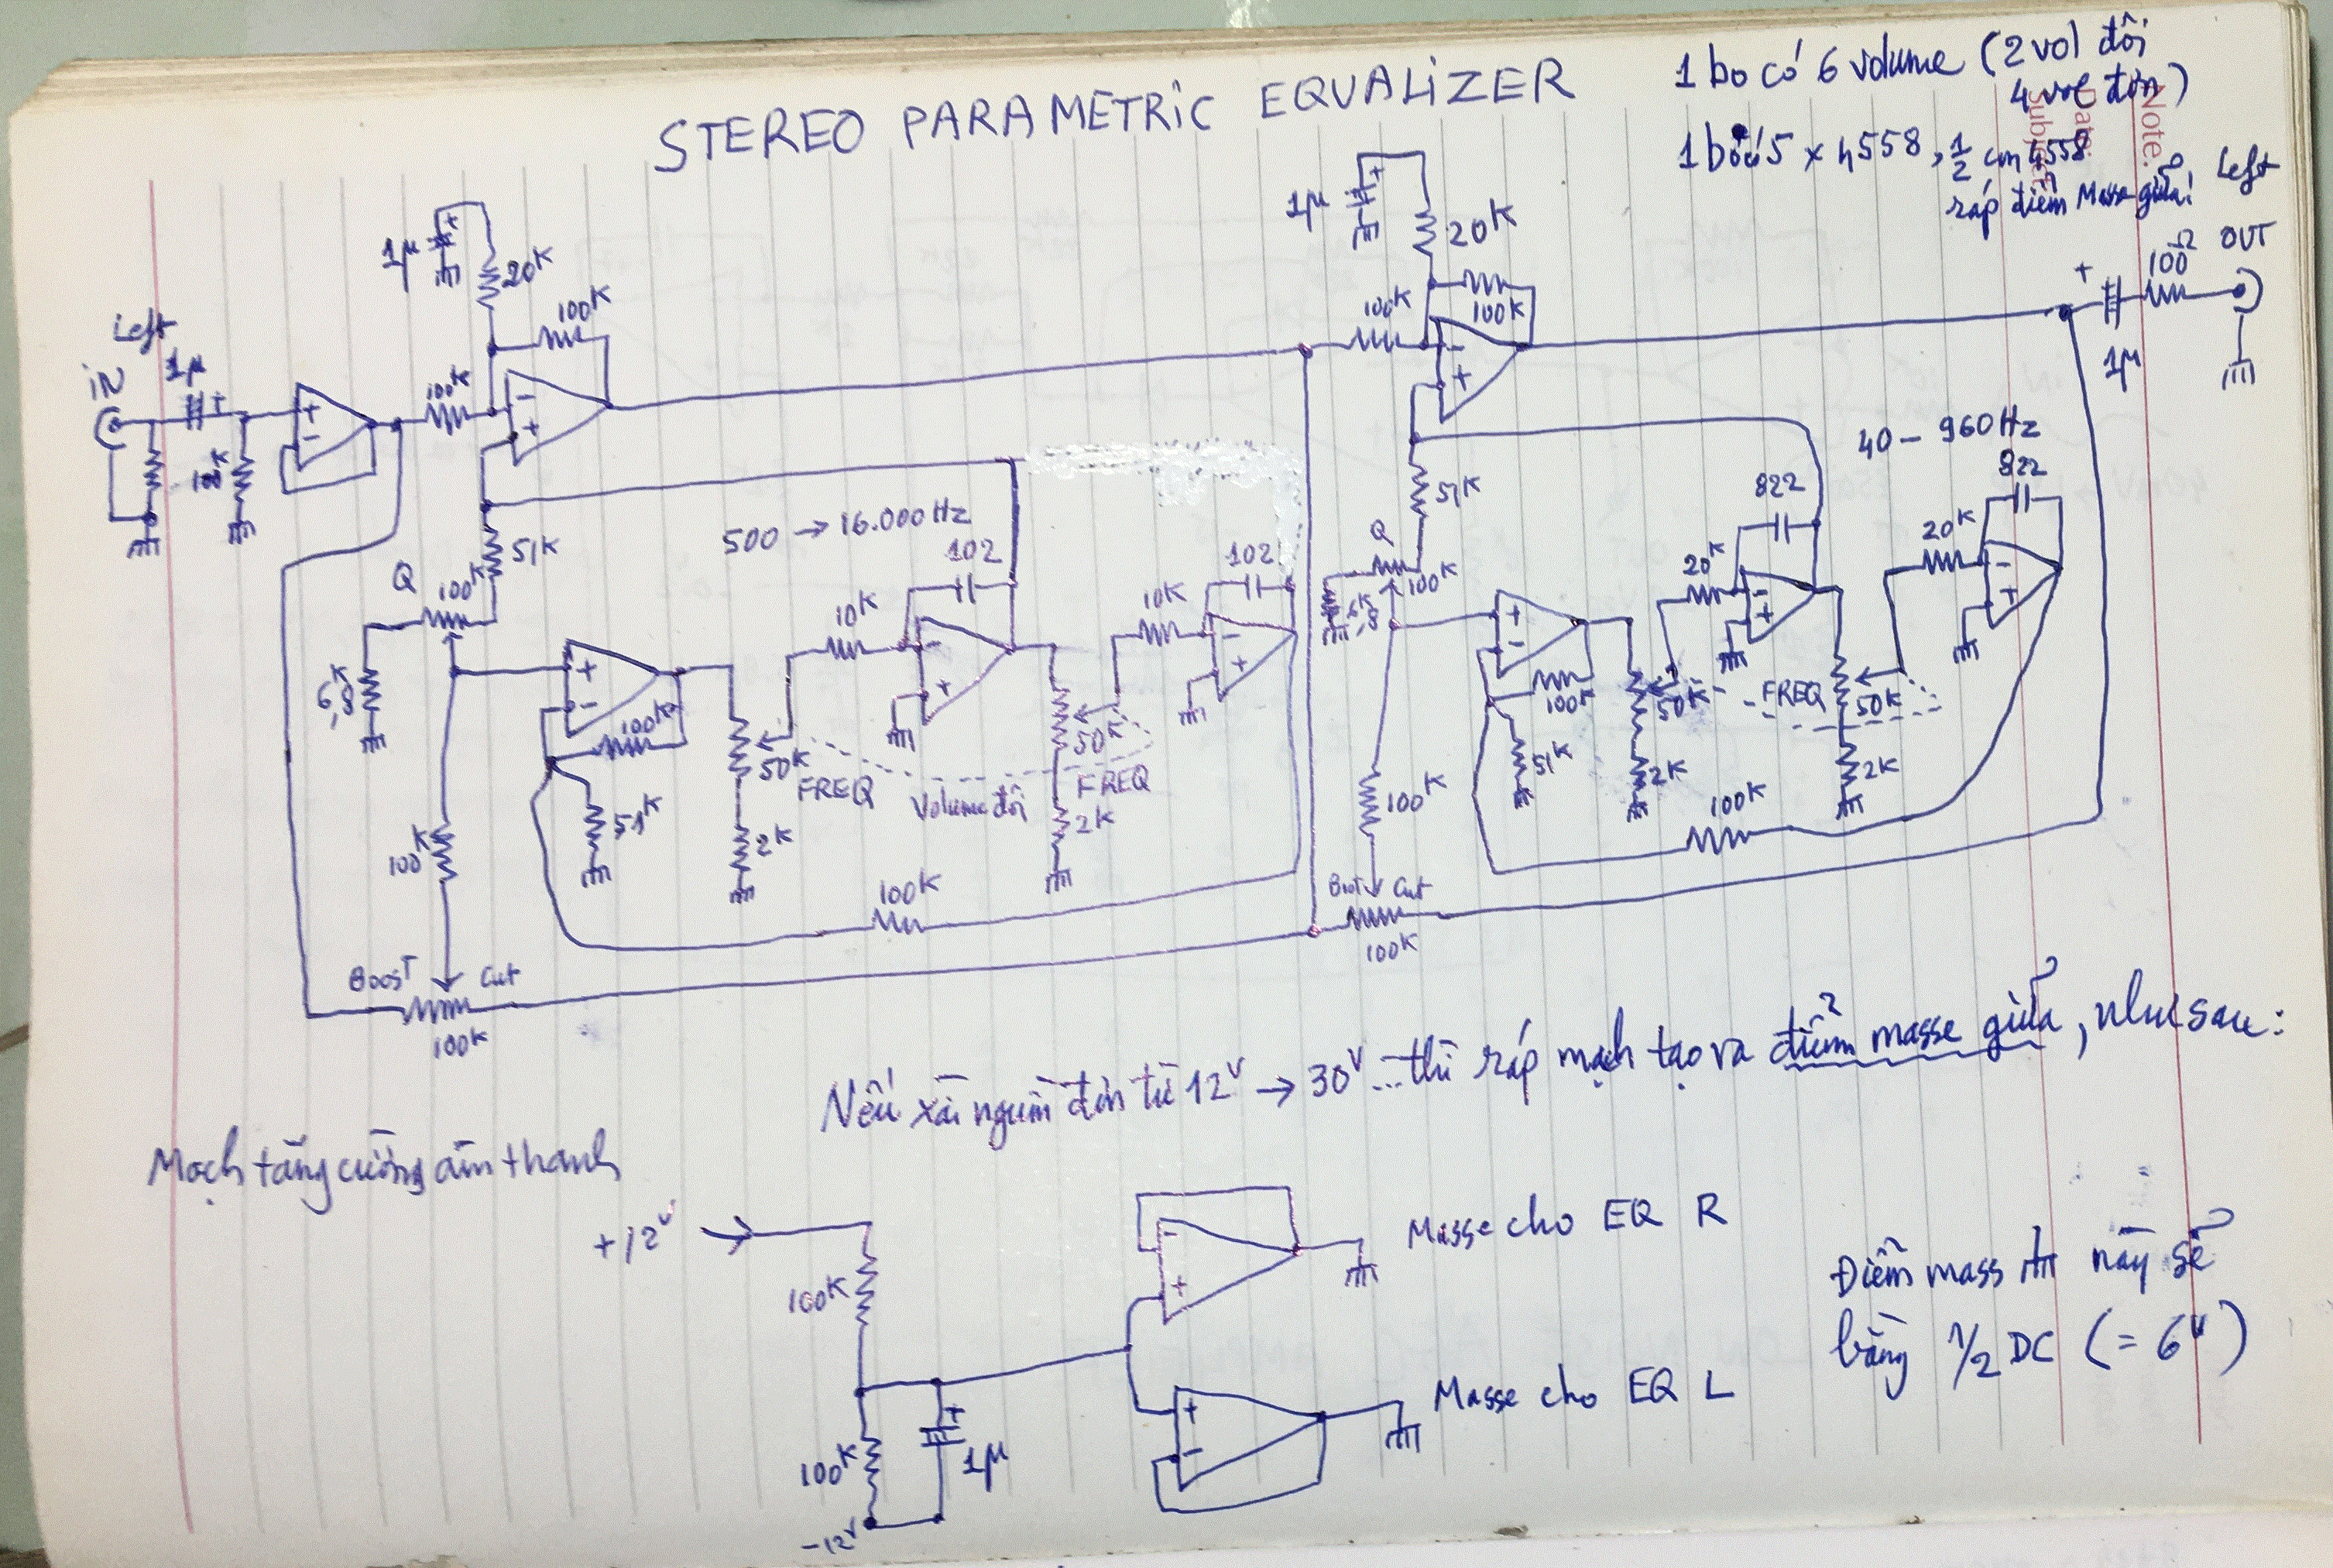 STEREO PARAMETRIC EQUALIZER
1 bo có 6 volume (2 vol đôi
4 vol đơn)
Note.
Date:
Subject:
5 x 4558, 1/2 con 4558
ráp điểm Masse giữa!
Left
OUT
100Ω
+
1µ
1µ
+
20K
100K
Left
IN
1µ
+
100K
+
-
-
+
1µ
+
20K
100K
100K
-
+
500 → 16.000 Hz
51K
Q
100K
6,8K
102
102
10K
10K
+
-
100K
-
+
-
+
50K
FREQ
Volume đôi
50K
FREQ
51K
2K
2K
100K
100K
Boost
Cut
100K
40 - 960 Hz
51K
Q
100K
6K,8
822
822
20K
20K
+
-
100K
-
+
-
+
50K
FREQ
50K
51K
2K
2K
100K
100K
Boost
Cut
100K
Nếu xài nguồn đơn từ 12V → 30V ... thì ráp mạch tạo ra điểm masse giữa, như sau:
Mạch tăng cường âm thanh
+12V
100K
100K
+
1µ
-12V
-
+
Masse cho EQ R
+
-
Masse cho EQ L
Điểm mass này sẽ
bằng 1/2 DC (= 6V)